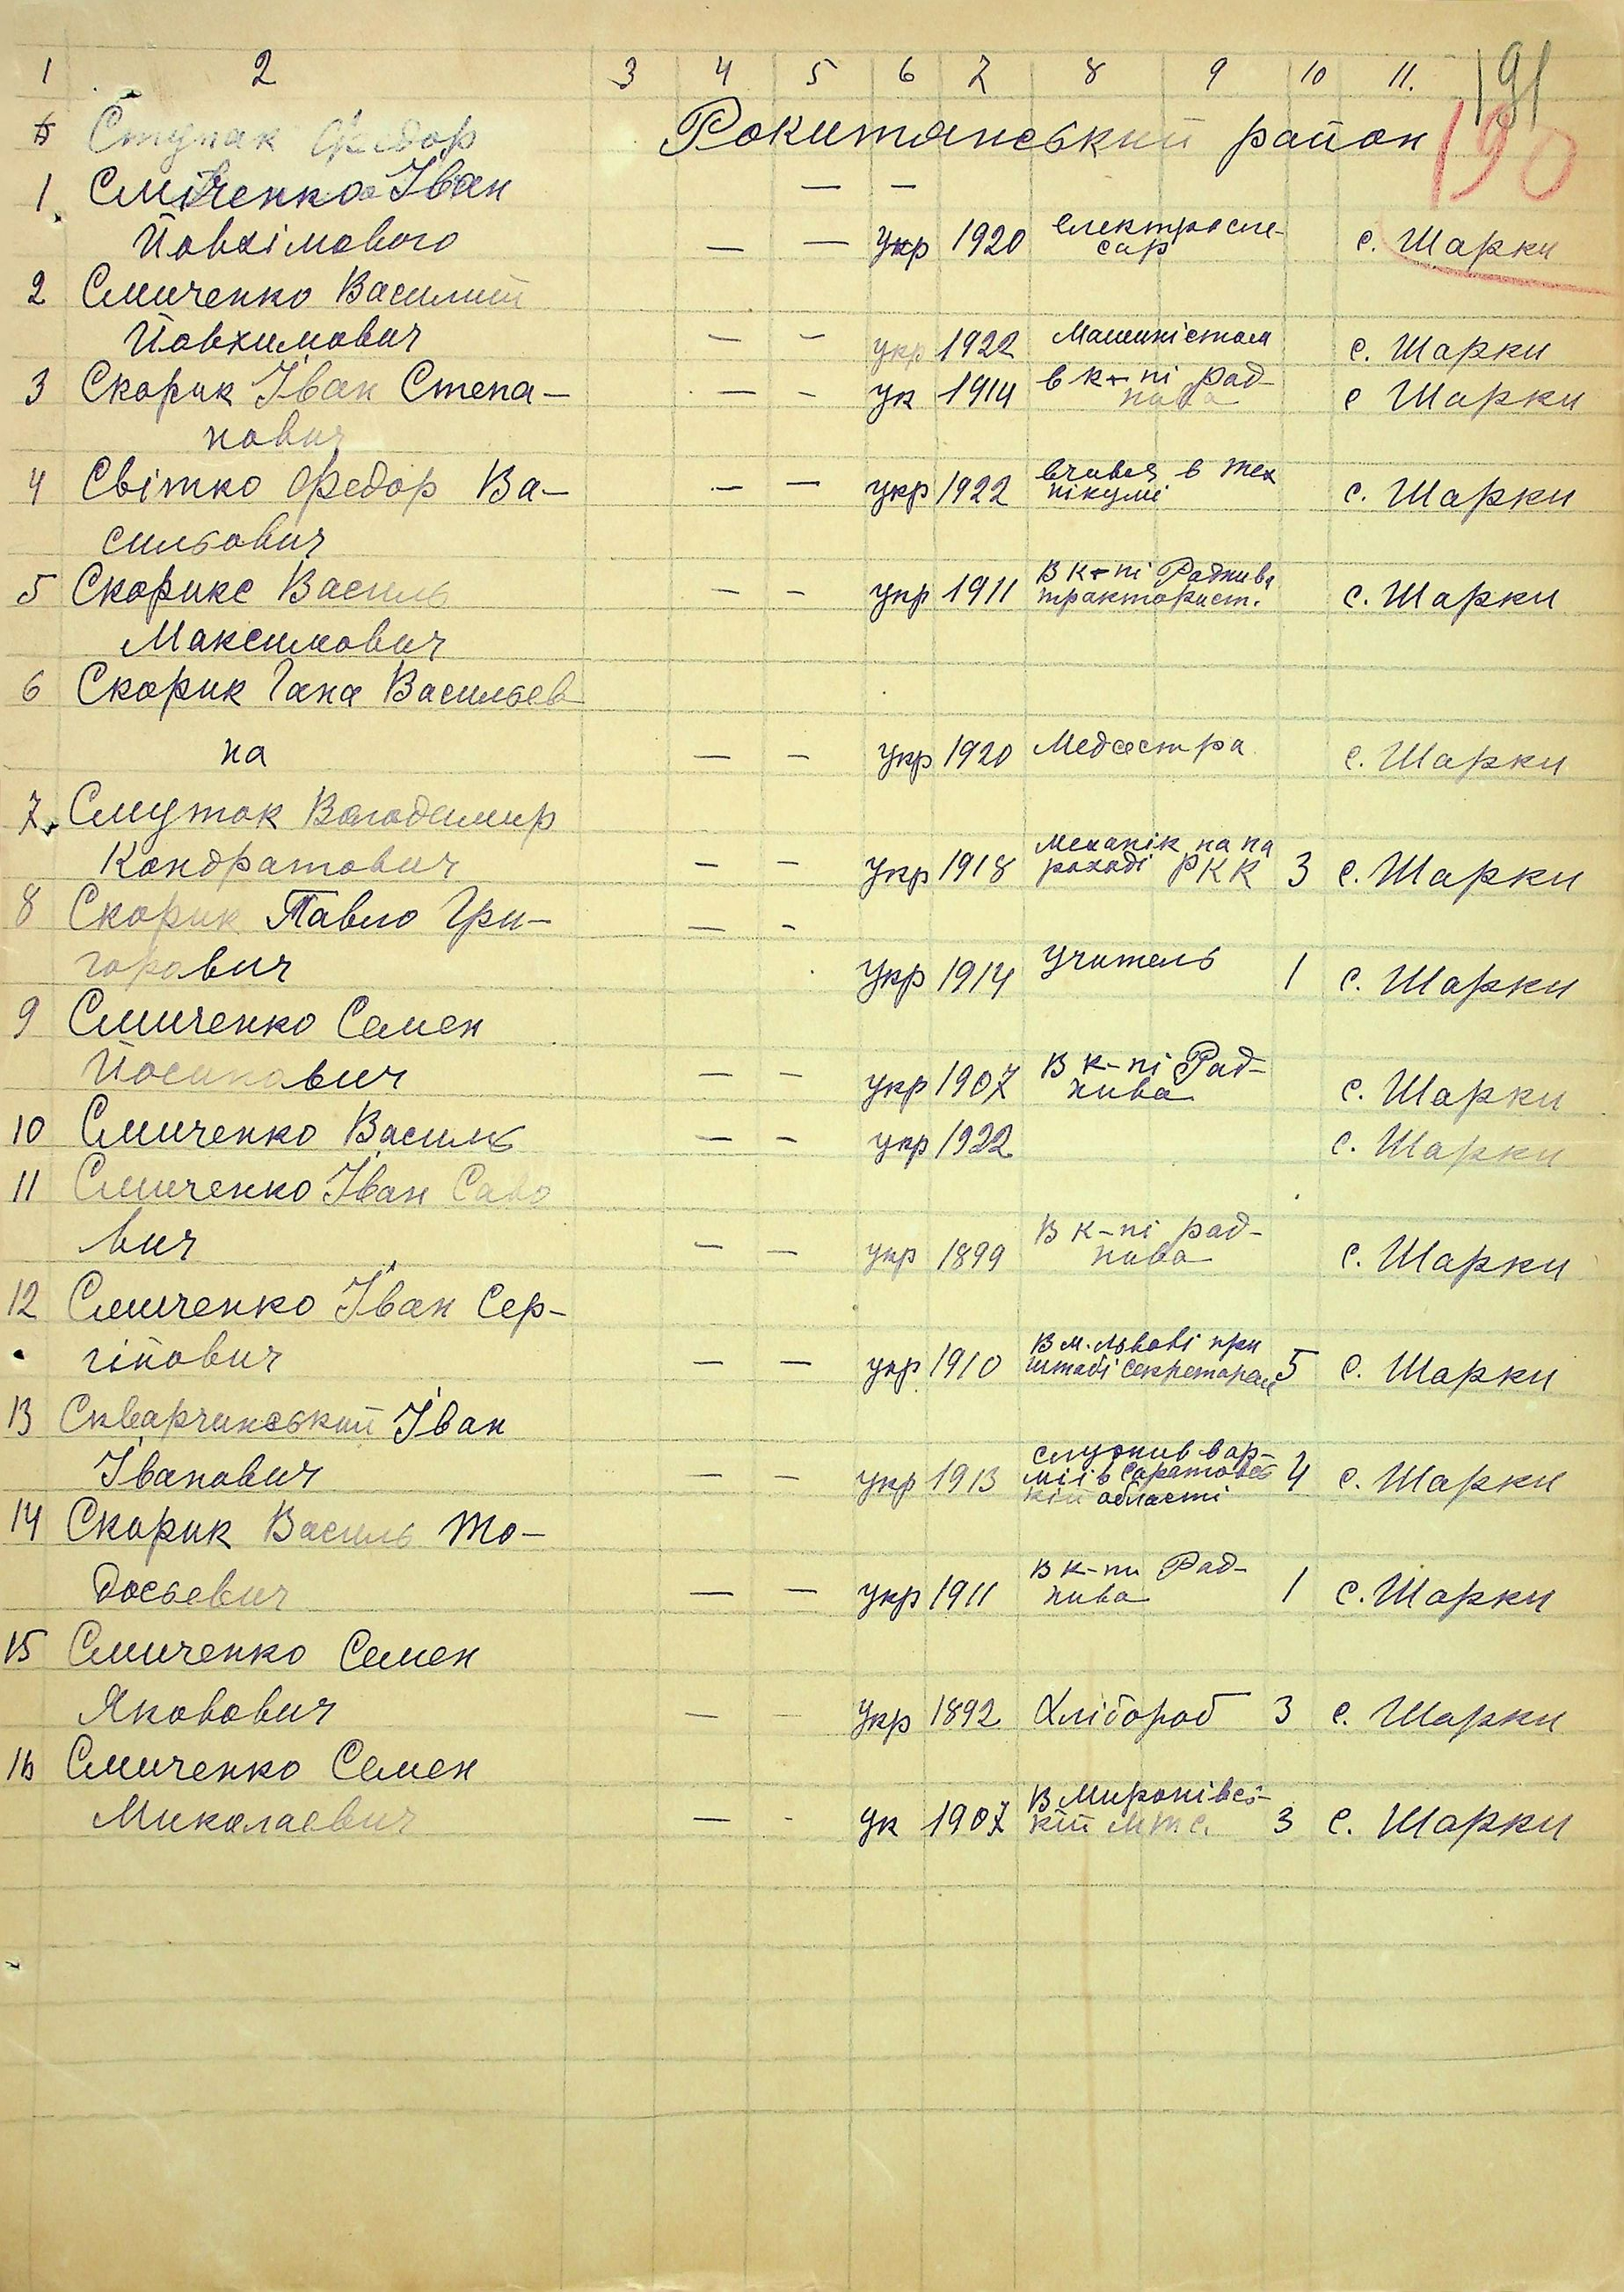 1 2 3 4 5 6 7 8 9 10 11. 191
Ступак Федор Рокитянський район 190
1 Сміченко Іван — —
Йовхімового — — укр 1920 електросле-
сар с. Шарки
2 Смиченко Василий
Йовхимович — — укр 1922 Машиністом с. Шарки
3 Скорик Іван Степа- — — ук 1914 в к-пі рад-
нива с Шарки
нович
4 Світко Федор Ва- — — укр 1922 вчився в тех
нікумі с. Шарки
сильович
5 Скорикс Василь — — укр 1911 В к-пі Раднива
тракторист. с. Шарки
Максимович
6 Скорик Гана Васильев
на — — укр 1920 Медсестра с. Шарки
7. Смуток Володимир
Кондратович — — укр 1918 механік на па
роході РКК 3 с. Шарки
8 Скорик Павло Гри- — —
горович укр 1914 учитель 1 с. Шарки
9 Смиченко Семен
Йосипович — — укр 1907 В к-пі Рад-
нива с. Шарки
10 Смиченко Василь — — укр 1922 с. Шарки
11 Смиченко Іван Саво
вич — — укр 1899 В к-пі рад-
нива с. Шарки
12 Смиченко Іван Сер-
гійович — — укр 1910 В м. Львові при
штабі секретарем 5 с. Шарки
13 Скварчинський Іван
Іванович — — укр 1913 служив в ар-
мії в Саратовсь
кій області 4 с. Шарки
14 Скорик Василь То-
досьевич — — укр 1911 В к-пи Рад-
нива 1 с. Шарки
15 Смиченко Семен
Якович — — укр 1892 Хлібороб 3 с. Шарки
16 Смиченко Семен
Миколаевич — — ук 1907 В Миронівсь-
кій МТС. 3 с. Шарки